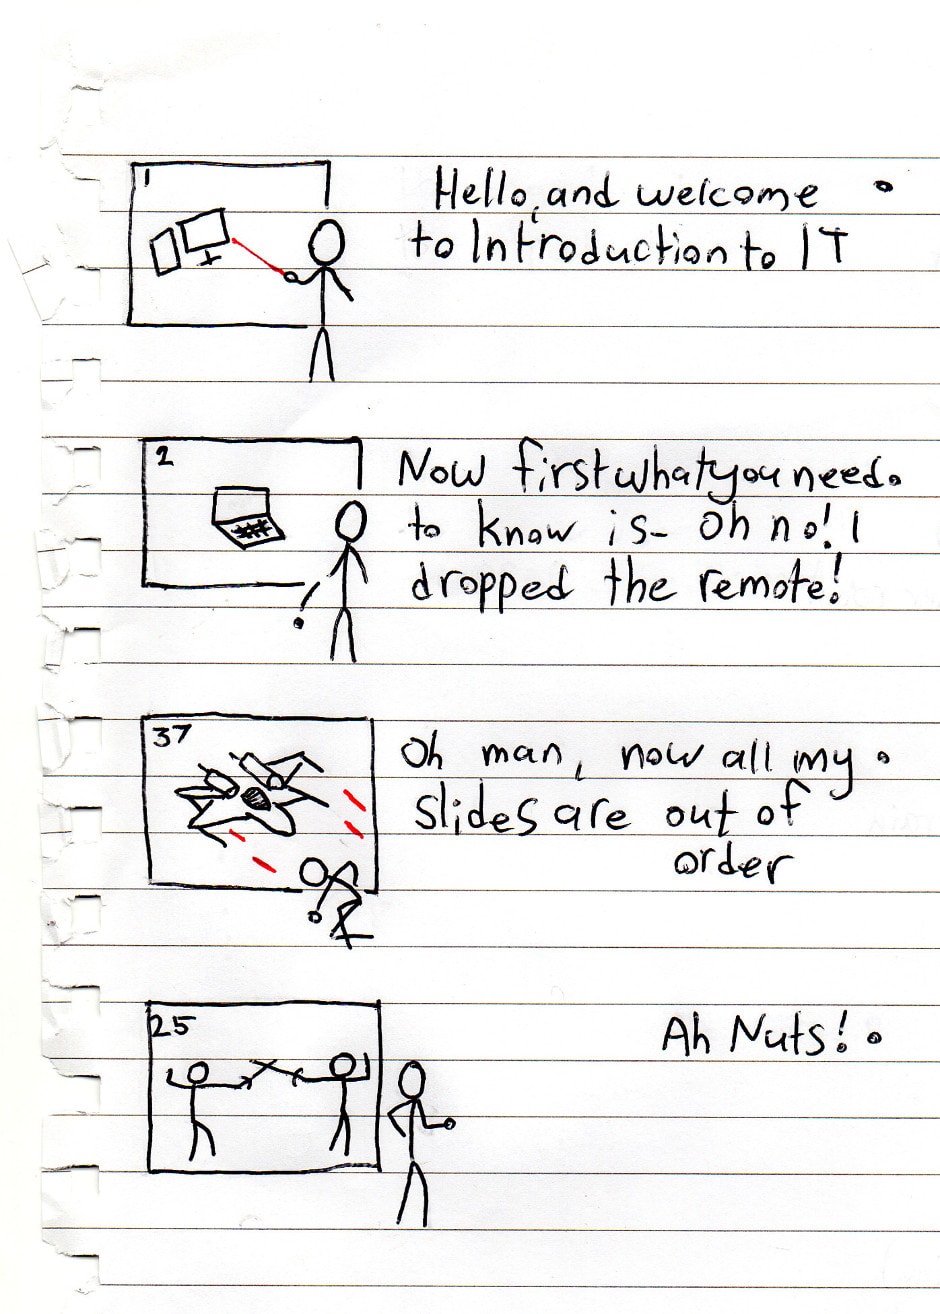 1
Hello, and welcome
to Introduction to IT
2
Now first what you need
to know is- Oh no! I
dropped the remote!
37
Oh man, now all my
slides are out of
order
25
Ah Nuts!